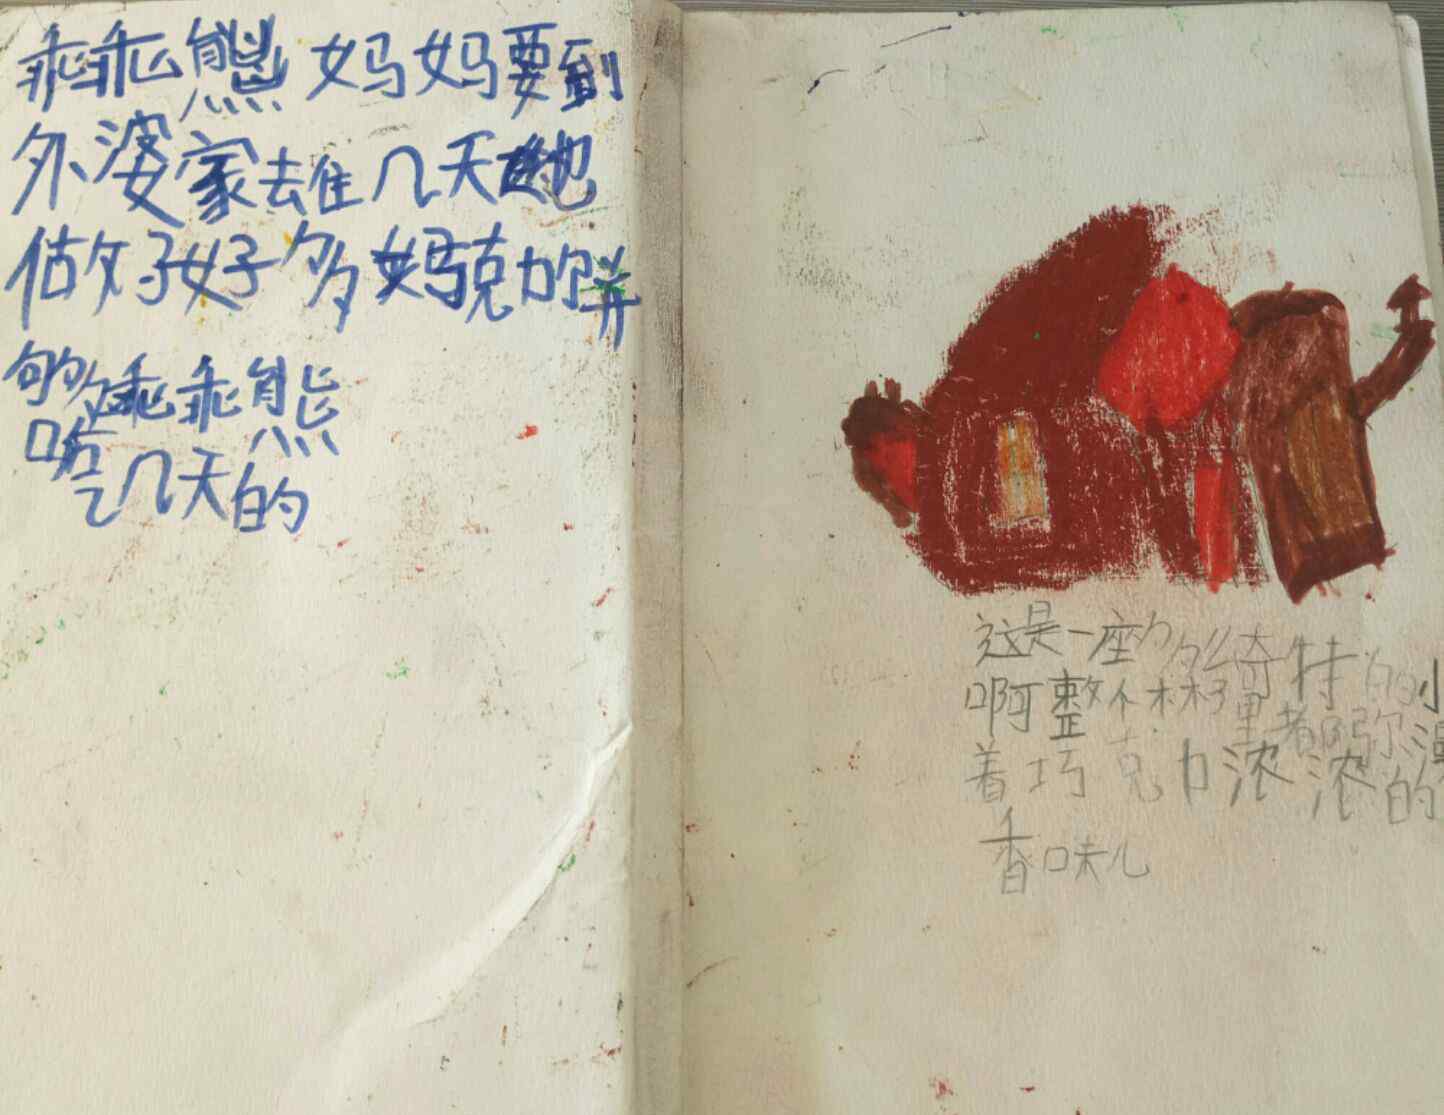 乖乖熊妈妈要到
外婆家去住几天她
做好好多妈克力饼
够乖乖熊
吃几天的
这是一座多么奇特的小
啊整个林子里都弥漫
着巧克力浓浓的
香味儿